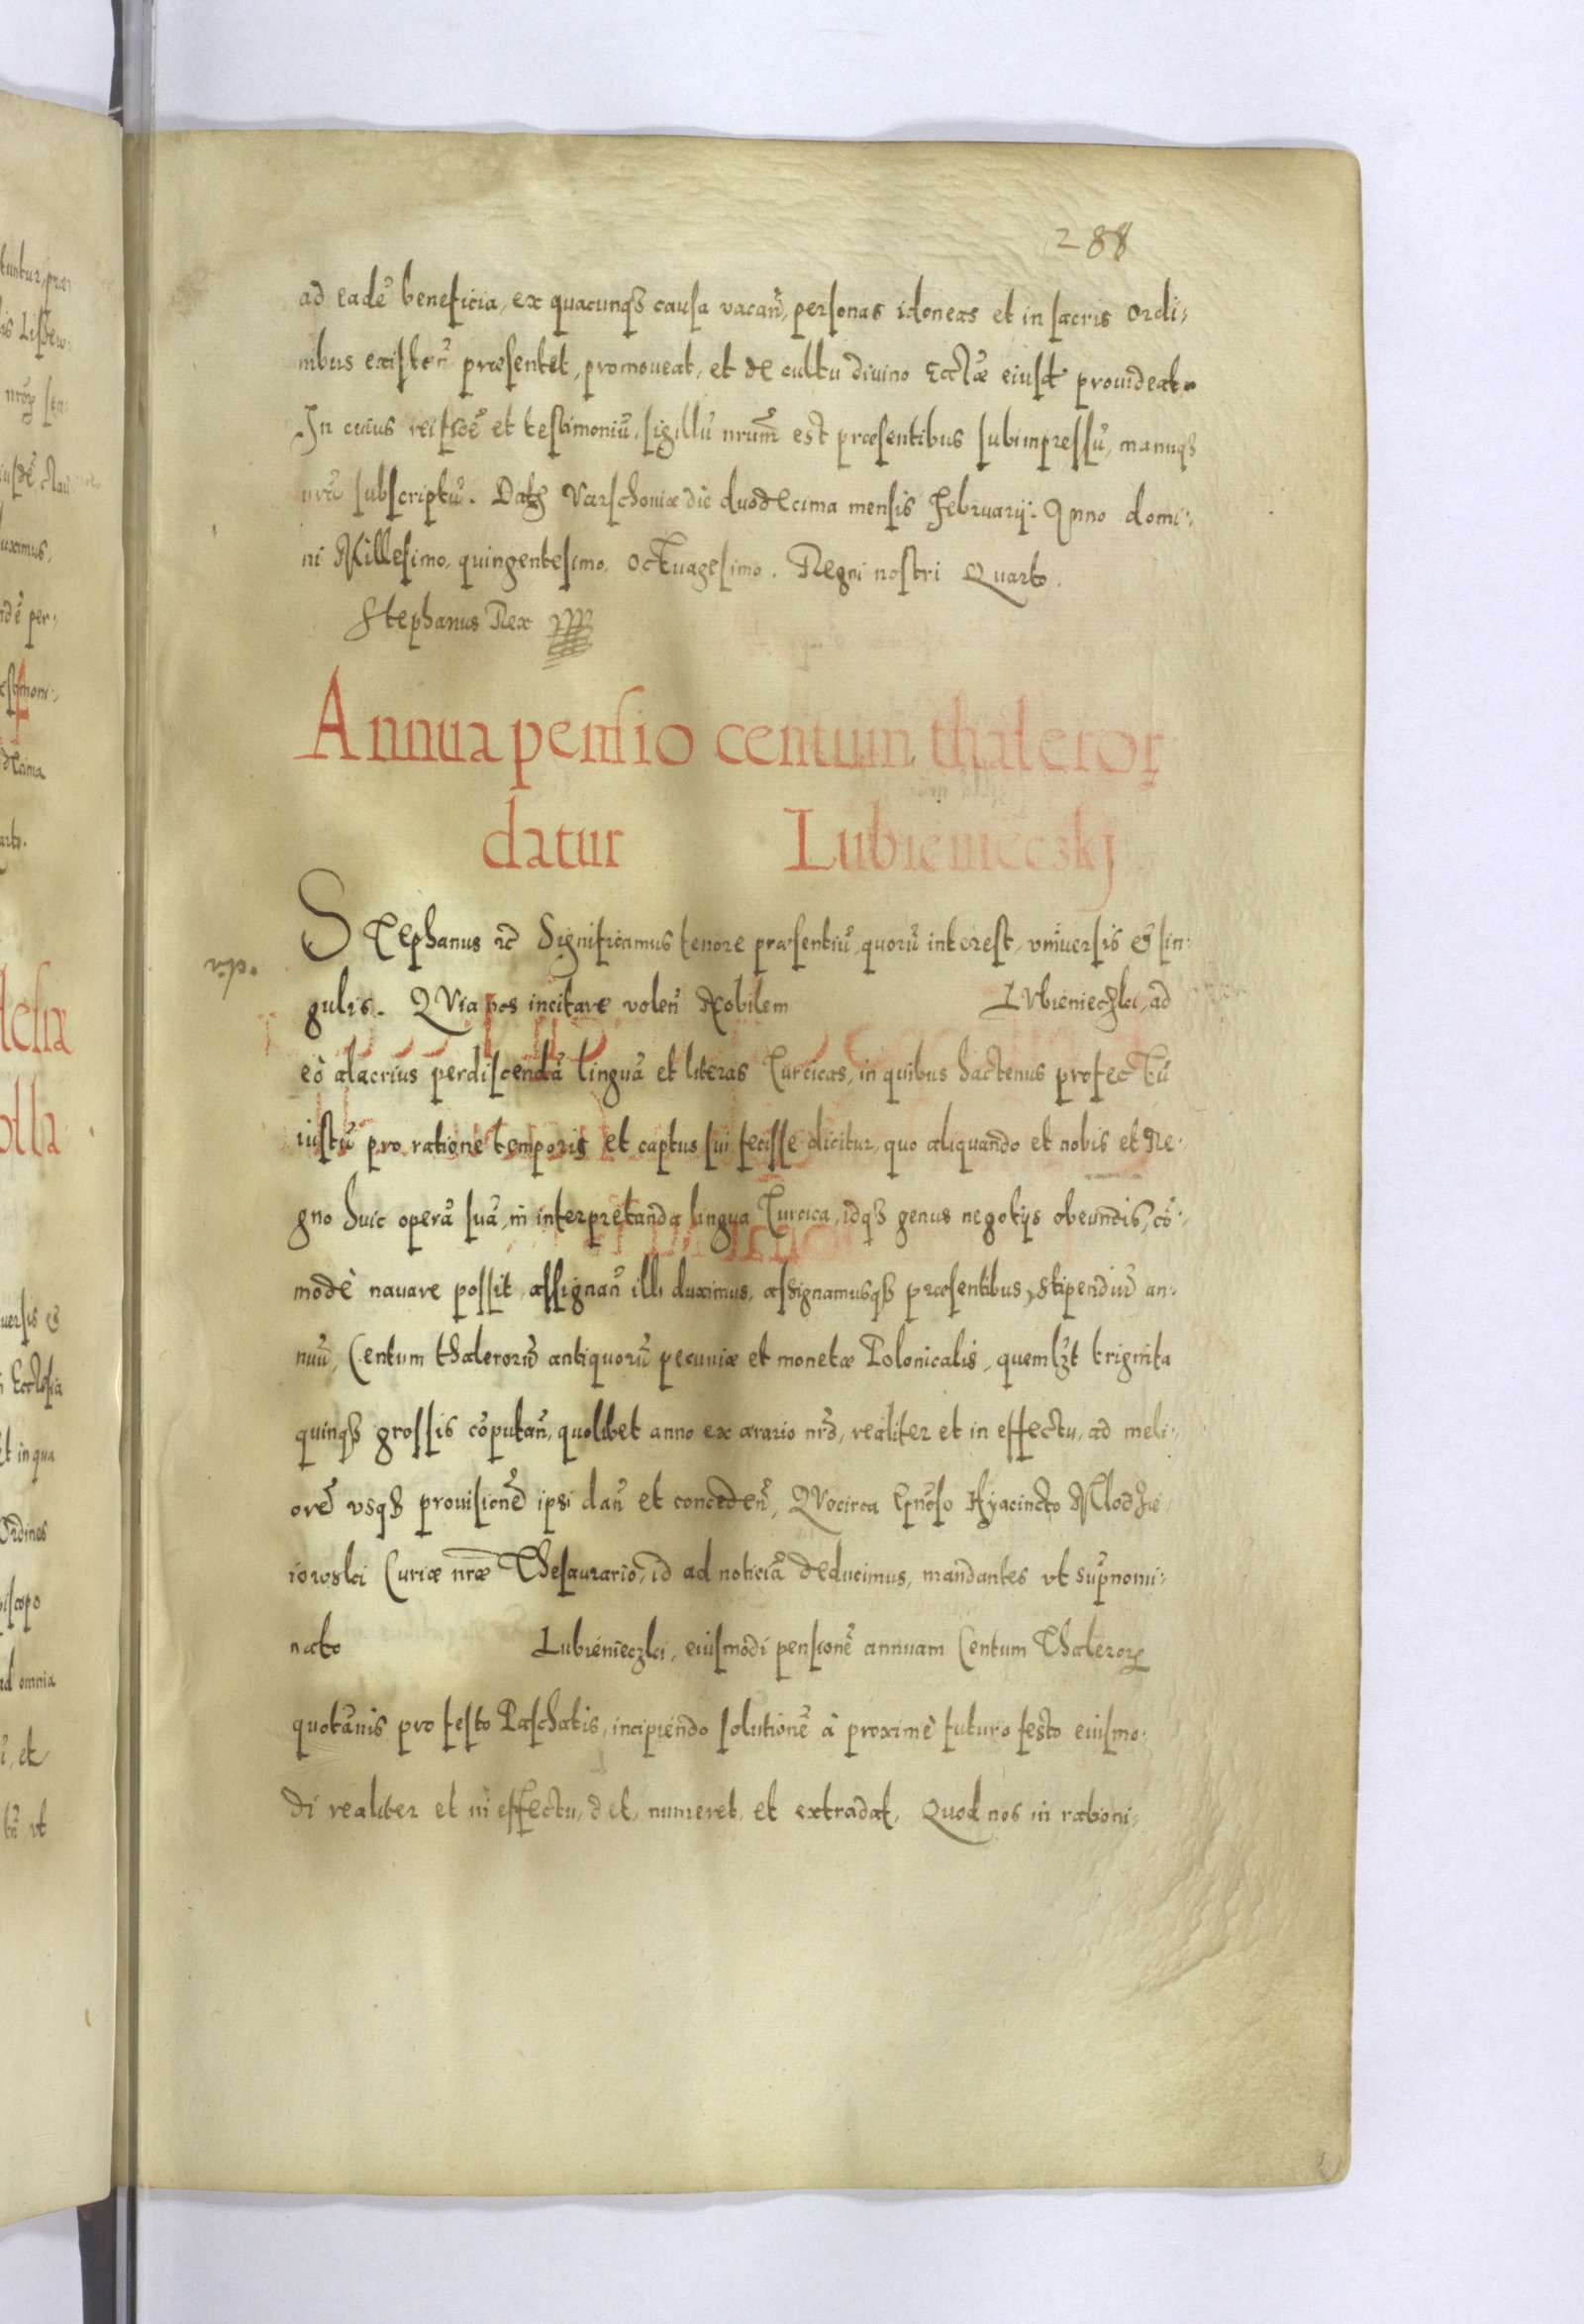 288
ad eadē beneficia, ex quacunqȝ causa vacan̄, personas idoneas et in sacris Ordi-
nibus existen̄ præsentet, promoveat, et de cultu divino Eccl̄æ eiusd̄ provideat.
In cuius rei fidē et testimoniū, sigillū nrūm est præsentibus subimpressū, manuqȝ
nrā subscriptū. Datȝ Varschoviæ die duodecima mensis Februarij. Anno domi-
ni Millesimo, quingentesimo, octuagesimo. Regni nostri Quarto.
Stephanus Rex
Annua pensio centum thaleroꝝ
datur Lubienieczkj
STephanus ꝛc̄ Significamus tenore præsentiū, quorū interest, vniversis & sin-
gulis. QVia nos incitare volen̄ Nobilem LVbienieczki, ad
eò alacrius perdiscendā linguā et literas Turcicas, in quibus hactenus profectū
iustū pro ratione temporis et captus sui fecisse dicitur, quo aliquando et nobis et Re-
gno huic operā suā, in interpretanda lingua Turcica, idqȝ genus negotijs obeundis, cō-
modè navare possit, assignan̄ illi duximus, assignamusqȝ præsentibus, stipendiū an-
nuū, Centum thalerorū antiquorū pecuniæ et monetæ Polonicalis, quemlȝt triginta
quinqȝ grossis cōputan̄, quolibet anno ex ærario nr̄o, realiter et in effectu, ad meli-
orē vsqȝ provisionē ipsi dan̄ et conceden̄, QVocirca Gn̄oso Hyacincto Mlodzie-
iowski Curiæ nr̄æ Thesaurario, id ad noticiā deducimus, mandantes vt sup̄nomi-
nato Lubienieczki, eiusmodi pensionē annuam Centum Thaleroꝝ
quotānis pro festo Paschatis, incipiendo solutionē à proximè futuro festo eiusmo-
di realiter et in effectu, det, numeret, et extradat, Quod nos in rationi-